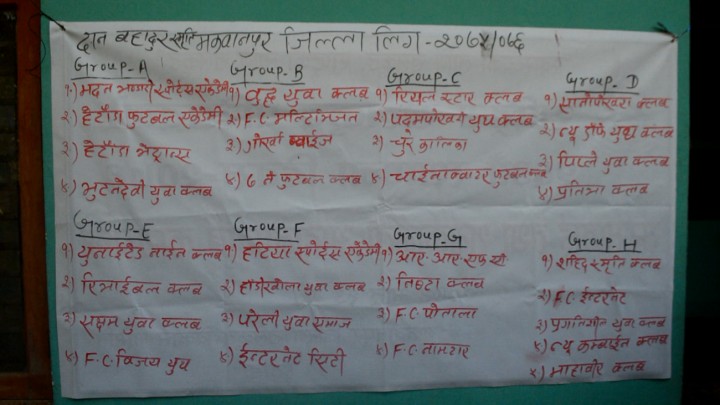 दान बहादुर स्मृति मकवानपुर जिल्ला लिग - २०७५/०७६
Group-A
१) मदन भण्डारी स्पोर्टस एकेडेमी
२) हेटौंडा फुटबल एकेडेमी
३) हेटौंडा भेट्रान्स
४) भुटनदेवी युवा क्लब
Group-B
१) वुद्ध युवा क्लब
२) F.C. मल्टिभिजन
३) गोर्खा ब्वाईज
४) ७ ते फुटबल क्लब
Group-C
१) रियल स्टार क्लब
२) पदमपोखरी युथ क्लब
३) चुरे कालिका
४) चाईना क्वाटर फुटबल क्लब
Group-D
१) सानोपोखरा क्लब
२) न्यू डाँफे युवा क्लब
३) पिप्ले युवा क्लब
४) प्रतिभा क्लब
Group-E
१) युनाईटेड नाईन क्लब
२) रिभाईबल क्लब
३) सक्षम युवा क्लब
४) F.C. विजय युथ
Group-F
१) हटिया स्पोर्टस एकेडेमी
२) हाँडीखोला युवा क्लब
३) परेली युवा समाज
४) ईन्टरनेट सिटी
Group-G
१) आर. आर. एफ. सी
२) तिष्टा क्लब
३) F.C. पोताला
४) F.C. तामटार
Group-H
१) शहिद स्मृति क्लब
२) F.C. ईन्टरनेट
३) प्रगतिशील युवा क्लब
४) न्यू कम्बाईन क्लब
५) माहावीर क्लब